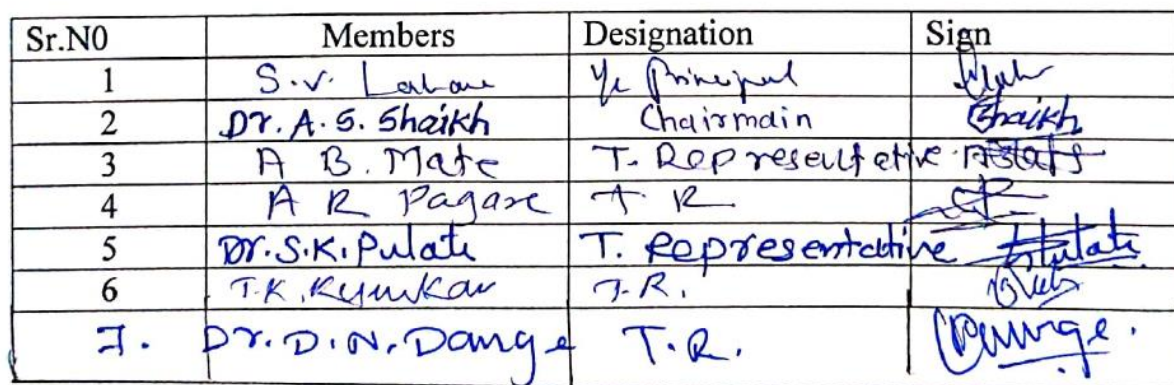 Sr.N0 Members Designation Sign
1 S.V. Lahane I/c Principal
2 Dr. A. S. Shaikh Chairmain Shaikh
3 A B. Mate T. Representative
4 A R Pagare T R
5 Dr. S.K. Pulate T. Representative Pulate
6 T.K. T.R.
7. Dr. D. N. Dange T.R. Dange.